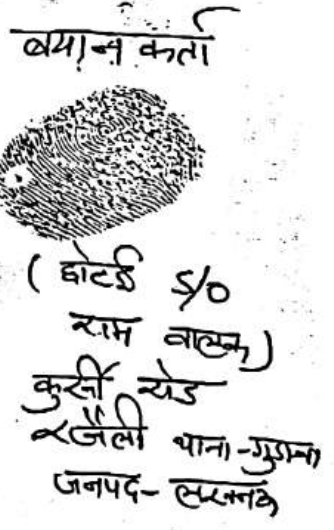 बयान कर्ता
(छोटई S/o
राम बालक)
कुर्सी रोड
रजौली थाना-गुडम्बा
जनपद- लखनऊ